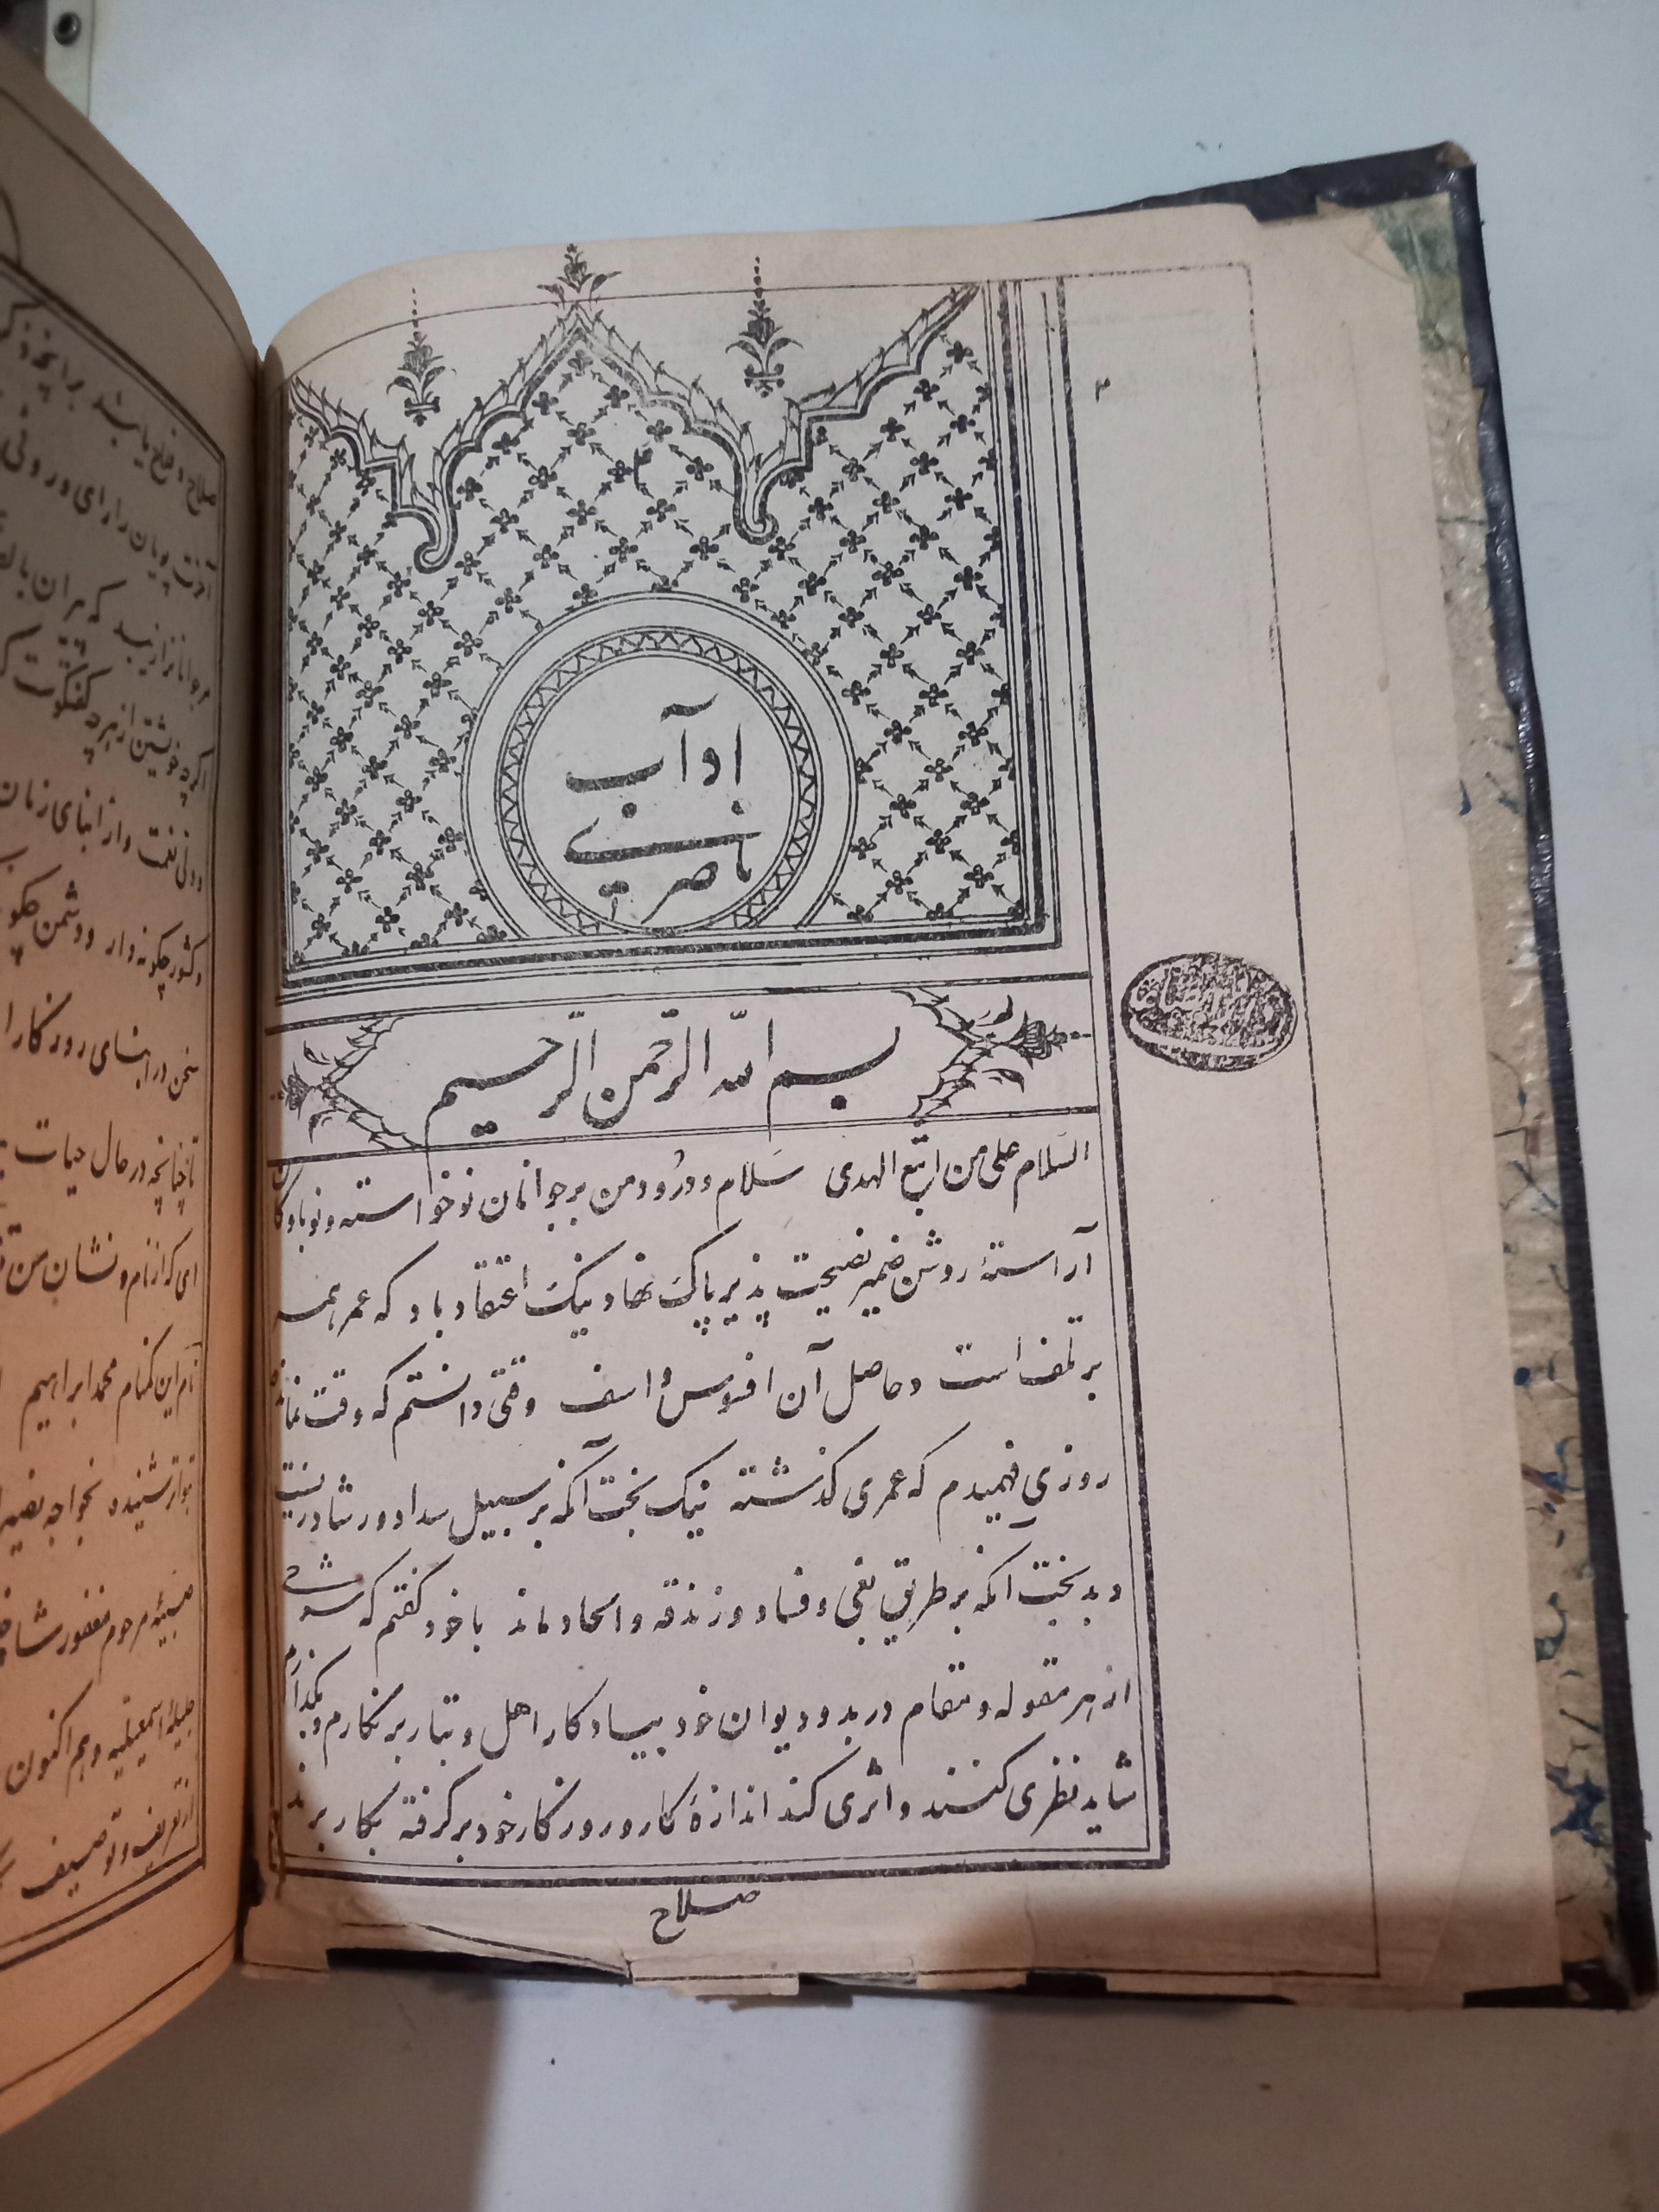 ۲
آداب
ناصری
بسم الله الرّحمن الرّحیم
السّلام علی من اتّبع الهدی سَلام و درُود من بر جوانان نوخواسته و نوباوکان
آراستهٔ روشن ضمیر نصیحت پذیر پاک نهاد نیک اعتقاد باد که عمر همه
بر تلف است و حاصل آن افسوس و اسف وقتی دانستم که وقت نمانده
روزی فهمیدم که عمری کذشته نیک بخت آنکه بر سبیل سداد و رشاد زیست
و بدبخت انکه بر طریق بغی و فساد و زندقه و الحاد ماند با خود کفتم که
از هر مقوله و مقام در بدو دیوان خود بیادکار اهل و تبار بر نکارم و بکذارم
شاید نظری کنند و اثری کند اندازهٔ کار و روزکار خود بر کرفته بکار برند
صلاح
صلاح و فلاح یابند
آخرت پویان را رای و روئی
که پیران
اکرچه خویشتن از هرچه کفتکوست
و ولی نعمت و از ابنای زمان
و کشور چکونه دار و دشمن
سخن در ابنای روزکار
تا چنانچه در حال حیات
ای که از نام و نشان من
نام این کمنام محمد ابراهیم
بتواتر شنیده بخواجه نصیر
مرحوم مغفور
جلیلهٔ اسمعیلیه و هم اکنون
از تعریف و توصیف